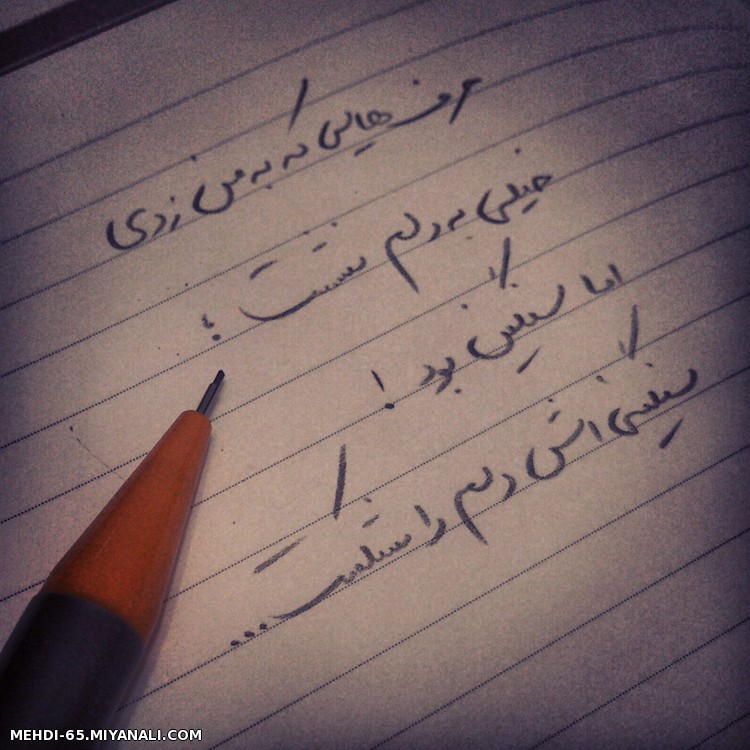 حرف هایی که به من زدی
خیلی به دلم نشست ؛
اما سنگین بود !
سنگینی اش دلم را شکست ...
MEHDI-65.MIYANALI.COM